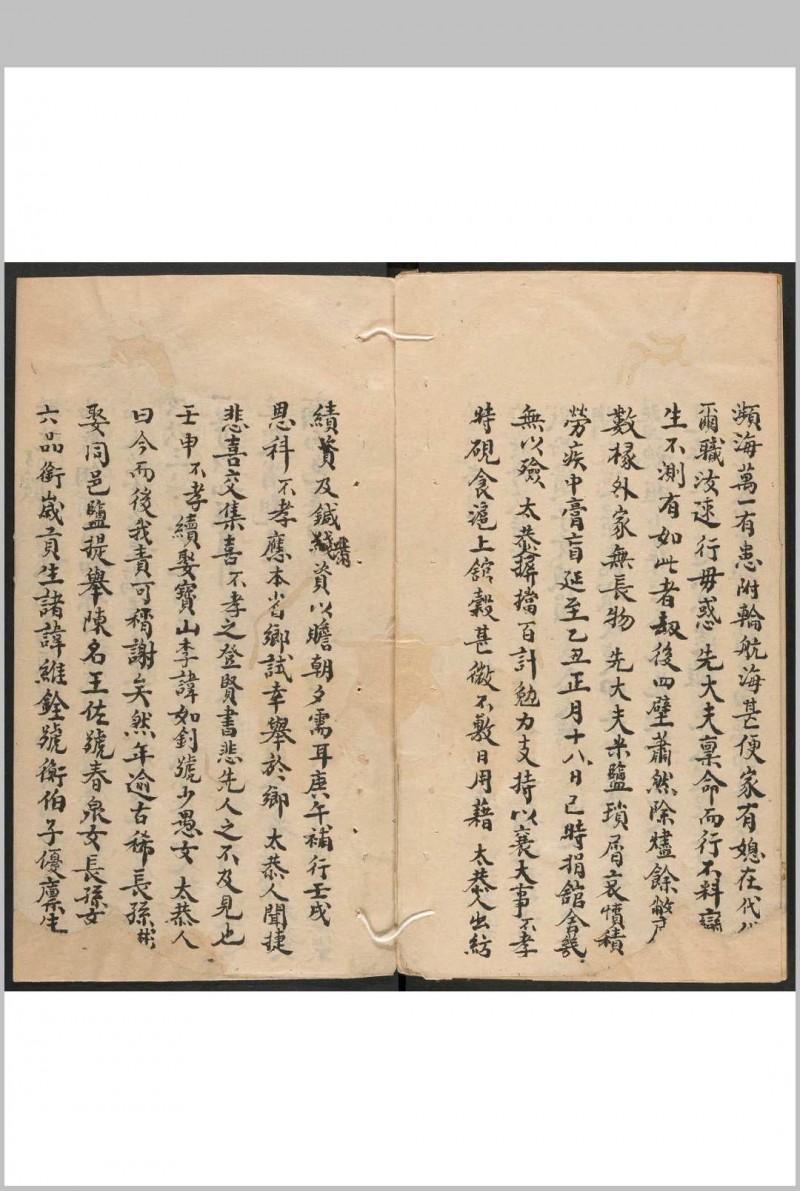 瀕海萬一有患附輪航海甚便家有媳在代
爾職汝速行毋惑 先大夫稟命而行不料變
生不測有如此者刼後四壁蕭然除爐餘敝
數椽外家無長物 先大夫米鹽瑣屑哀憤積
勞疾中膏肓延至乙丑正月十八日巳時捐館舍幾
無以殮 太恭摒擋百計勉力支持以襄大事不孝
時硯食滬上館穀甚微不敷日用藉 太恭人出紡
績賚及鍼黹資以贍朝夕需耳庚午補行壬戌
恩科不孝應本省鄉試幸舉於鄉 太恭人聞捷
悲喜交集喜不孝之登賢書悲先人之不及見也
壬申不孝續娶寶山李諱如釗號少愚女 太恭人
曰今而後我責可稍謝矣然年逾古稀長孫彬
娶同邑鹽提舉陳名王佐號春泉女長孫女
六品銜歲貢生諸諱維銓號衡伯子優廩生